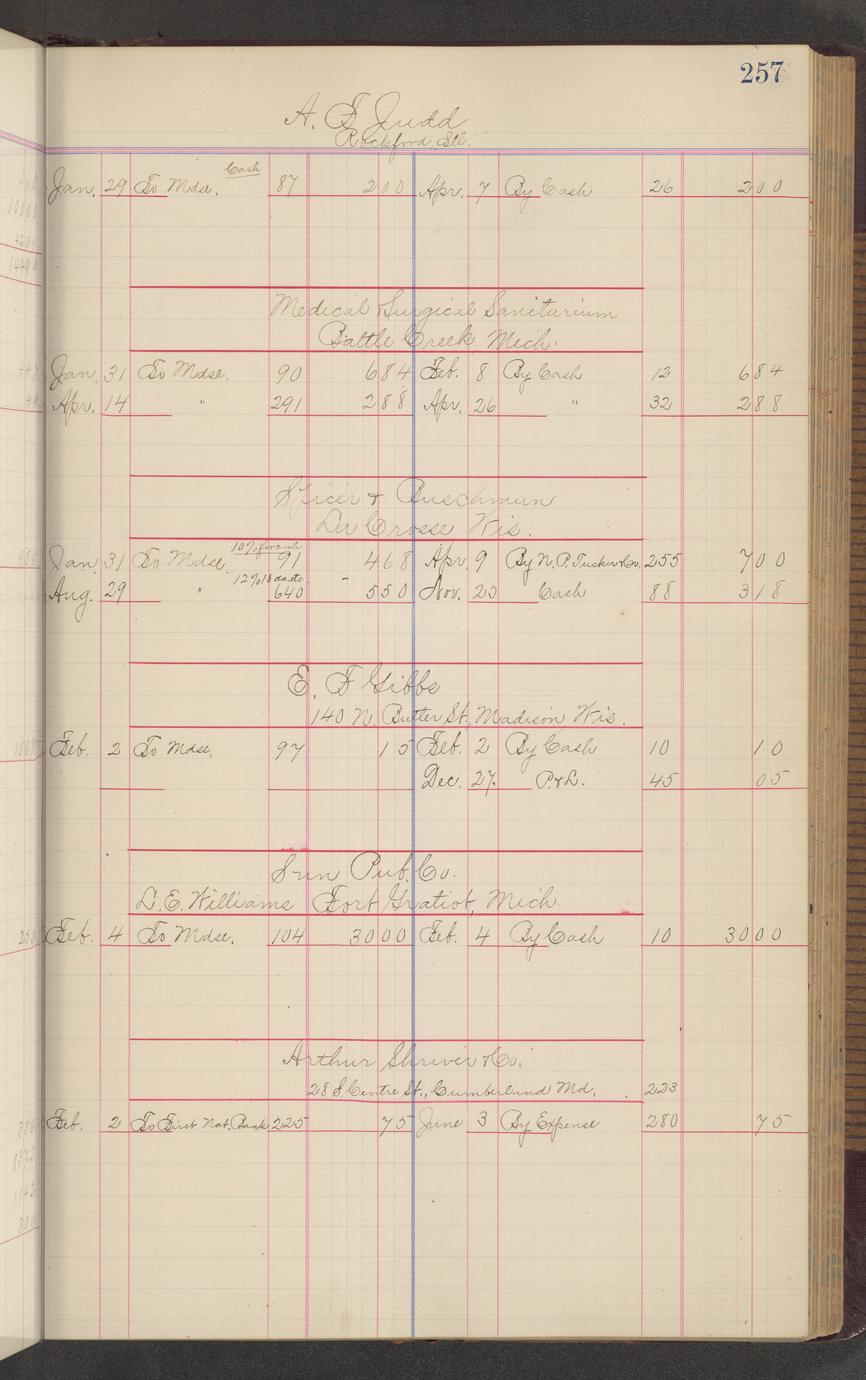 257
A. F. Judd
Rockford, Ill.
Cash
Jan. 29 To Mdse. 87 2 00 Apr. 7 By Cash 26 2 00
Medical & Surgical Sanitarium
Battle Creek Mich.
Jan. 31 To Mdse. 90 6 84 Feb. 8 By Cash 12 6 84
Apr. 14 " 291 2 88 Apr. 26 " 32 2 88
Spicer & Buschman
La Crosse Wis.
Jan. 31 To Mdse. 91 4 68 Apr. 9 By N. P. Tucker & Co. 255 7 00
Aug. 29 " 640 5 50 Nov. 25 Cash 88 3 18
E. F. Gibbs
140 N. Butler St., Madison Wis.
Feb. 2 To Mdse. 97 15 Feb. 2 By Cash 10 10
Dec. 27. P. & L. 45 05
Sun Pub. Co.
L. E. Williams Fort Gratiot, Mich
Feb. 4 To Mdse. 104 30 00 Feb. 4 By Cash 10 30 00
Arthur Shriver & Co.
28 S. Centre St., Cumberland Md. 223
Feb. 2 To First Nat. Bank 225 75 June 3 By Expense 280 75